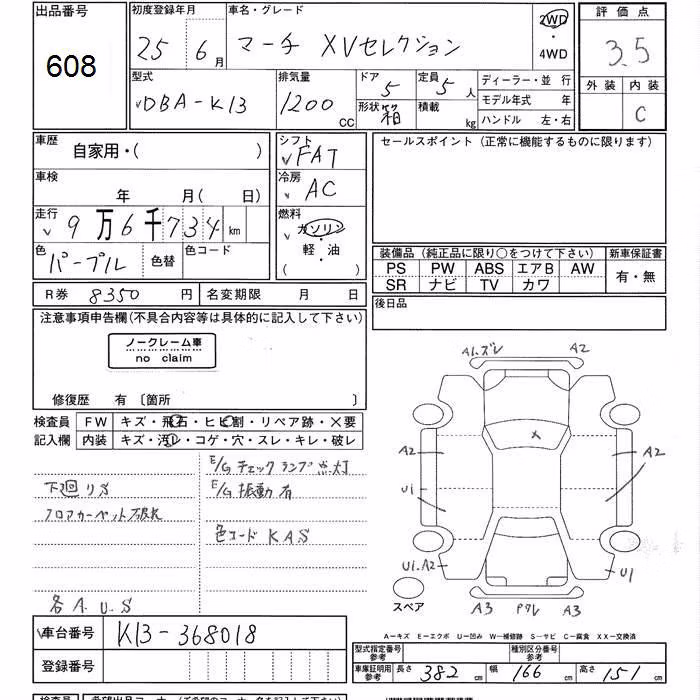 出品番号
608
初度登録年月
25年 6月
車名・グレード
マーチ XVセレクション
2WD
・
4WD
評価点
3.5
外装 内装
C
型式
DBA-K13
排気量
1200 CC
ドア
5
形状
箱
定員
5人
積載
kg
ディーラー・並行
モデル年式 年
ハンドル 左・右
車歴
自家用・( )
シフト
FAT
セールスポイント (正常に機能するものに限ります)
車検
年 月(日)
冷房
AC
走行
9万6千734km
燃料
ガソリン
・
軽・油
( )
色
パープル
色替
色コード
装備品 (純正品に限り○をつけて下さい)
新車保証書
PS PW ABS エアB AW
有・無
SR ナビ TV カワ
R券 8350円
名変期限 月 日
後日品
注意事項申告欄(不具合内容等は具体的に記入して下さい)
ノークレーム車
no claim
修復歴 有〔箇所 〕
検査員
記入欄
FW キズ・飛石・ヒビ割・リペア跡・×要
内装 キズ・汚れ・コゲ・穴・スレ・キレ・破レ
E/Gチェックランプ点灯
下廻りS
E/G振動有
フロアカーペット破れ
色コード KAS
各A.U.S
A1.ズレ A2
X
A2 A2
U1
U1.A2 U1
スペア
A3 PタレA3
A-キズ E-エクボ U-凹み W-補修跡 S-サビ C-腐食 XX-交換済
車台番号
K13-368018
登録番号
型式指定番号
参考
種別区分番号
参考
車庫証明用
参考
長さ 382cm
幅 166cm
高さ 151cm
検査員